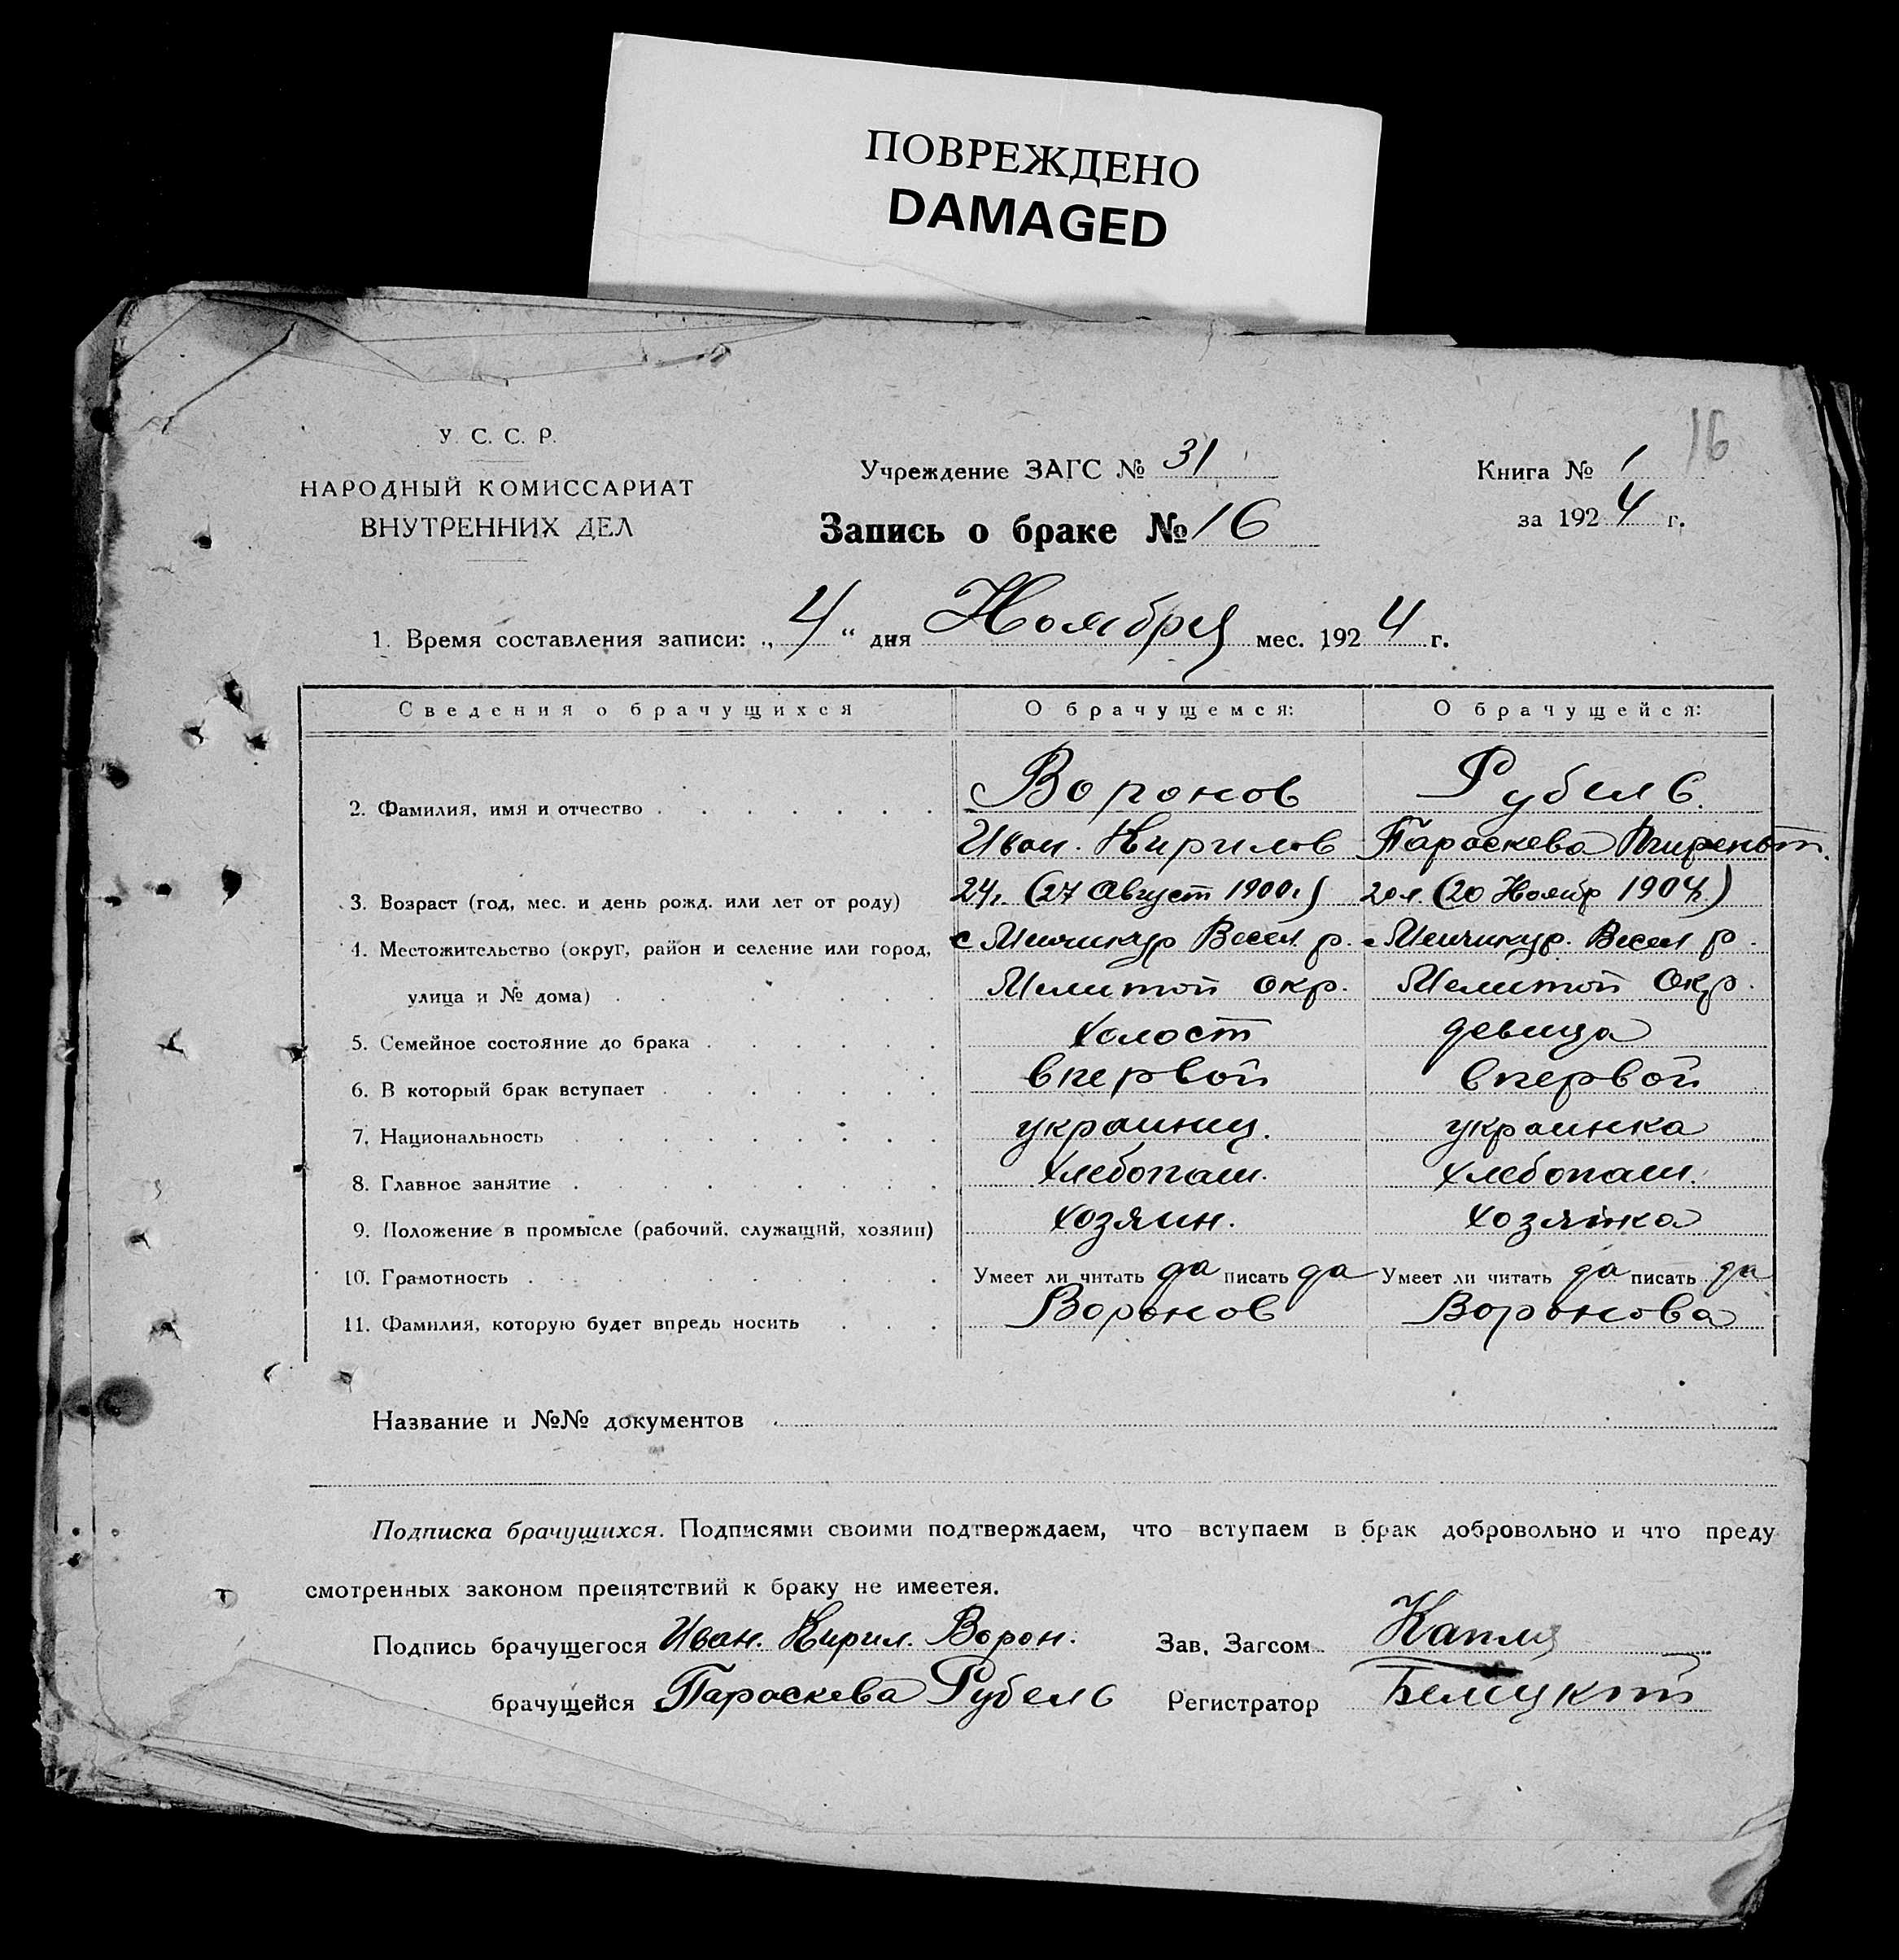 ПОВРЕЖДЕНО
DAMAGED
16
У. С. С. Р.
НАРОДНЫЙ КОМИССАРИАТ
ВНУТРЕННИХ ДЕЛ
Учреждение ЗАГС № 31
Книга № 1
за 1924 г.
Запись о браке № 16
1. Время составления записи: „4“ дня Ноября мес. 1924 г.
Сведения о брачущихся О брачущемся: О брачущейся:
2. Фамилия, имя и отчество Воронов Рубель
Иван. Кирилов Параскева
3. Возраст (год, мес. и день рожд. или лет от роду) 24 г. (27 Август 1900 г) 20 л. (20 Ноябр 1904 г)
4. Местожительство (округ, район и селение или город, с Менчикур Весел. р. с Менчикур. Весел р.
улица и № дома) Мелитоп окр. Мелитоп Окр.
5. Семейное состояние до брака холост девица
6. В который брак вступает впервой впервой
7. Национальность украинец. украинка
8. Главное занятие хлебопаш. хлебопаш.
9. Положение в промысле (рабочий, служащий, хозяин) хозяин. хозяйка
10. Грамотность Умеет ли читать да писать да Умеет ли читать да писать да
11. Фамилия, которую будет впредь носить Воронов Воронова
Название и №№ документов
Подписка брачущихся. Подписями своими подтверждаем, что вступаем в брак добровольно и что преду
смотренных законом препятствий к браку не имеется.
Подпись брачущегося Иван. Кирил. Ворон. Зав. Загсом Капля
брачущейся Параскева Рубель Регистратор Белецкий